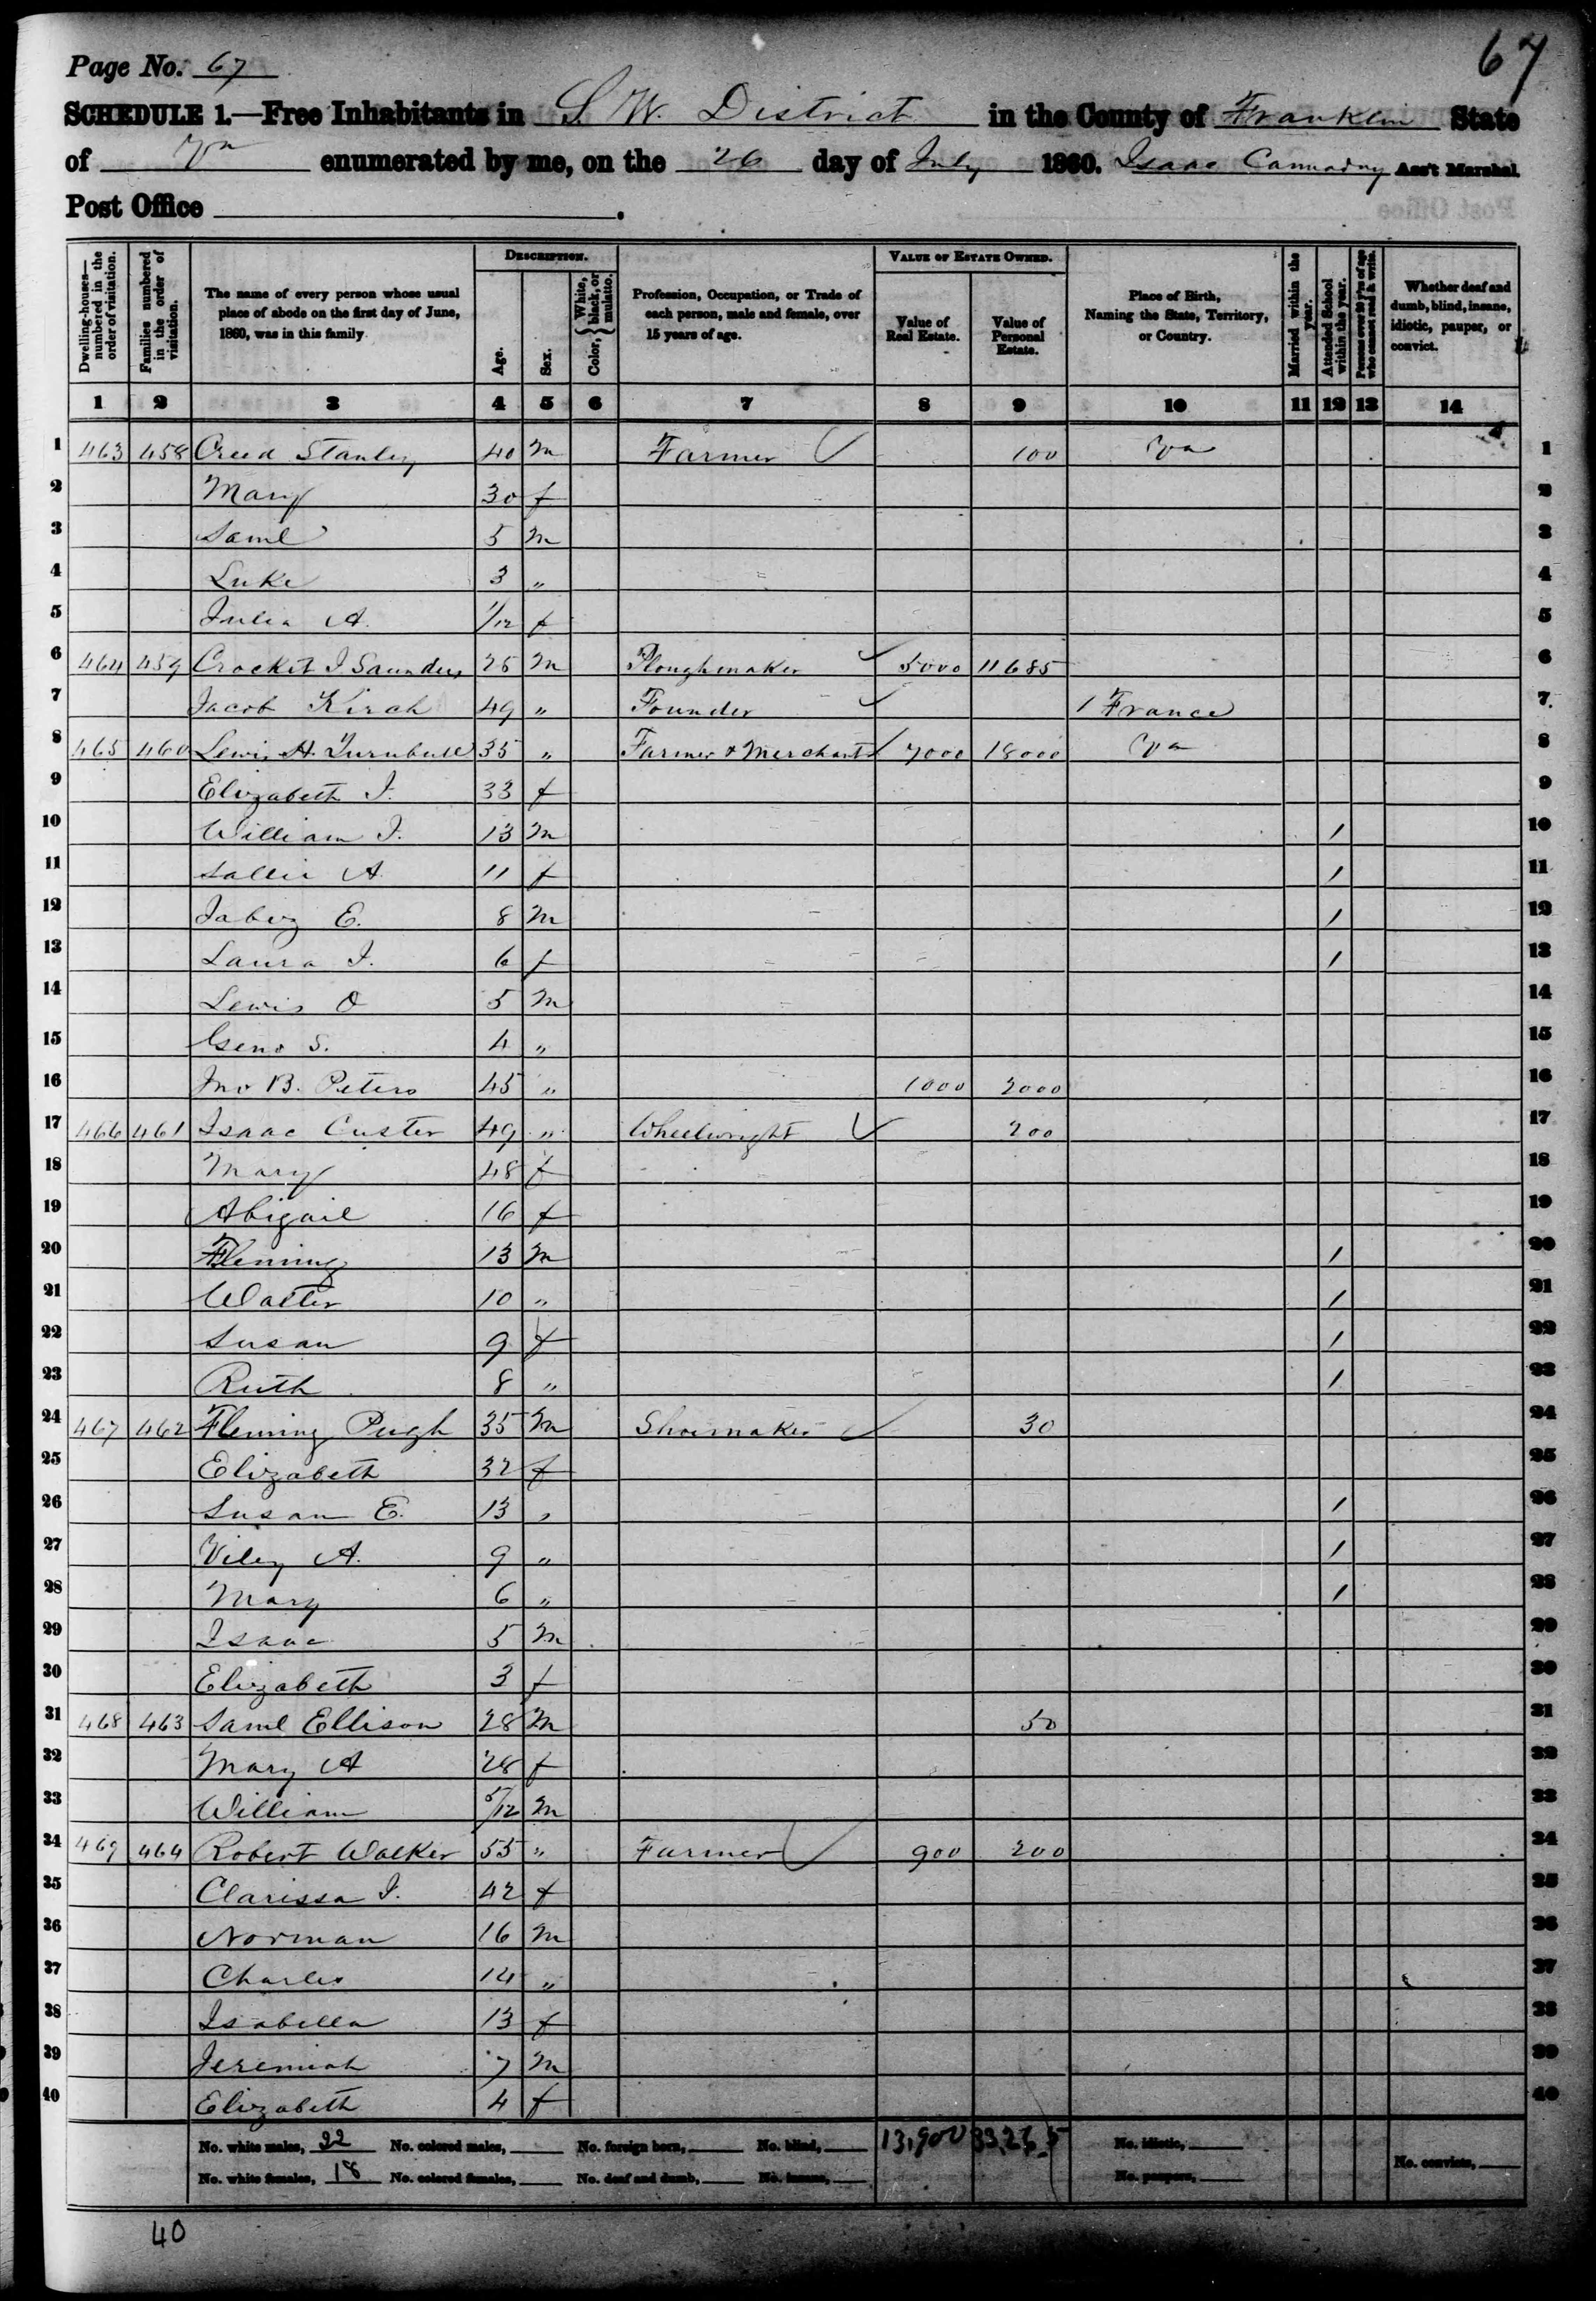 67
Page No. 67
SCHEDULE 1.—Free Inhabitants in S. W. District in the County of Franklin State
of Va enumerated by me, on the 26 day of July 1860. Isaac Cannaday Ass't Marshal.
Post Office
Dwelling-houses—numbered in the order of visitation. Families numbered in the order of visitation. The name of every person whose usual place of abode on the first day of June, 1860, was in this family. DESCRIPTION. Age. Sex. Color, { White, black, or mulatto. Profession, Occupation, or Trade of each person, male and female, over 15 years of age. VALUE OF ESTATE OWNED. Value of Real Estate. Value of Personal Estate. Place of Birth, Naming the State, Territory, or Country. Married within the year. Attended School within the year. Persons over 20 y'rs of age who cannot read & write. Whether deaf and dumb, blind, insane, idiotic, pauper, or convict.
1 2 3 4 5 6 7 8 9 10 11 12 13 14
1 463 458 Creed Stanley 40 m Farmer 100 Va 1
2 Mary 30 f 2
3 Saml 5 m 3
4 Luke 3 " 4
5 Julia A. 1/12 f 5
6 464 459 Crocket J Saunders 25 m Ploughmaker 5000 11685 6
7 Jacob Kirch 49 " Founder 1 France 7
8 465 460 Lewis H. Turnbull 35 " Farmer & Merchant 7000 18000 Va 8
9 Elizabeth J. 33 f 9
10 William J. 13 m / 10
11 Sallie A. 11 f / 11
12 Jabez E. 8 m / 12
13 Laura J. 6 f / 13
14 Lewis O 5 m 14
15 Geno S. 4 " 15
16 Jno B. Peters 45 " 1000 3000 16
17 466 461 Isaac Custer 49 " Wheelwright 200 17
18 Mary 48 f 18
19 Abigail 16 f 19
20 Fleming 13 m / 20
21 Walter 10 " / 21
22 Susan 9 f / 22
23 Ruth 8 " / 23
24 467 462 Fleming Pugh 35 m Shoemaker 30 24
25 Elizabeth 32 f 25
26 Susan E. 13 " / 26
27 Viley A. 9 " / 27
28 Mary 6 " / 28
29 Isaac 5 m 29
30 Elizabeth 3 f 30
31 468 463 Saml Ellison 28 m 50 31
32 Mary A 28 f 32
33 William 5/12 m 33
34 469 464 Robert Walker 55 " Farmer 900 200 34
35 Clarissa J. 42 f 35
36 Norman 16 m 36
37 Charles 14 " 37
38 Isabella 13 f 38
39 Jeremiah 7 m 39
40 Elizabeth 4 f 40
No. white males, 22 No. colored males, No. foreign born, No. blind, 13,900 33,265 No. idiotic,
No. white females, 18 No. colored females, No. deaf and dumb, No. insane, No. paupers, No. convicts,
40